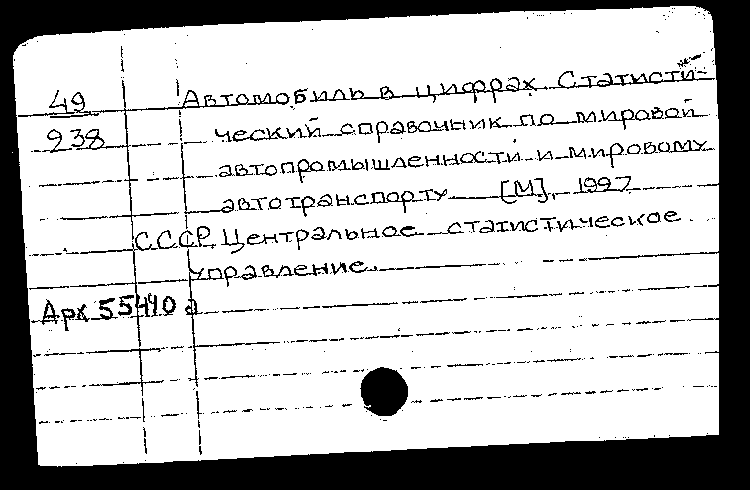 49
938
Автомобиль в цифрах. Статисти-
ческий справочник по мировой
автопромышленности и мировому
автотранспорту [М], 1997
СССР. Центральное статистическое
управление.
Арх 55410 а